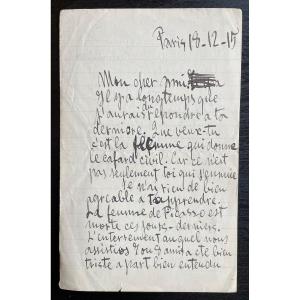 Paris 18-12-15
Mon cher ami
Il y a longtemps que
j'aurais du répondre a ta
derniere. Que veux-tu
c'est la flemme qui donne
le cafard civil. Car ce n'est
pas seulement toi qui s'ennuie
je n'ai rien de bien
agreable a t'apprendre.
La femme de Picasso est
morte ces jours-derniers.
L'enterrement auquel nous
assistions amis a été bien
triste a part bien entendu